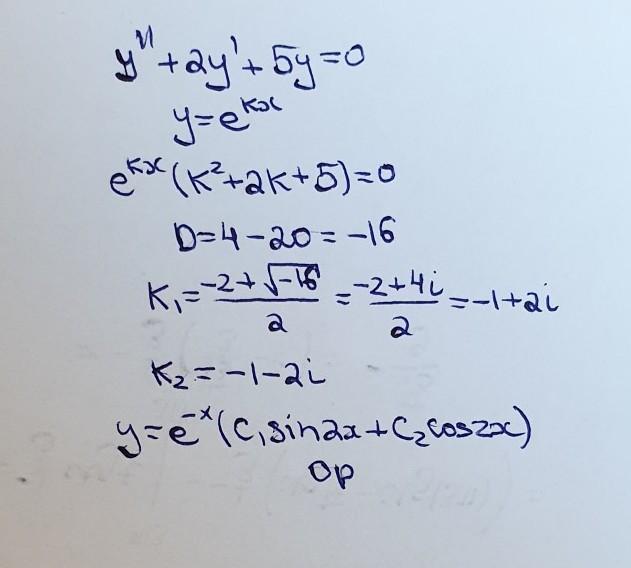 y''+2y'+5y=0
y=e^{kx}
e^{kx}(k²+2k+5)=0
D=4-20=-16
K₁=\frac{-2+√-16}{2}=\frac{-2+4i}{2}=-1+2i
K₂=-1-2i
y=e^{-x}(C₁sin2x+C₂cos2x)
Op